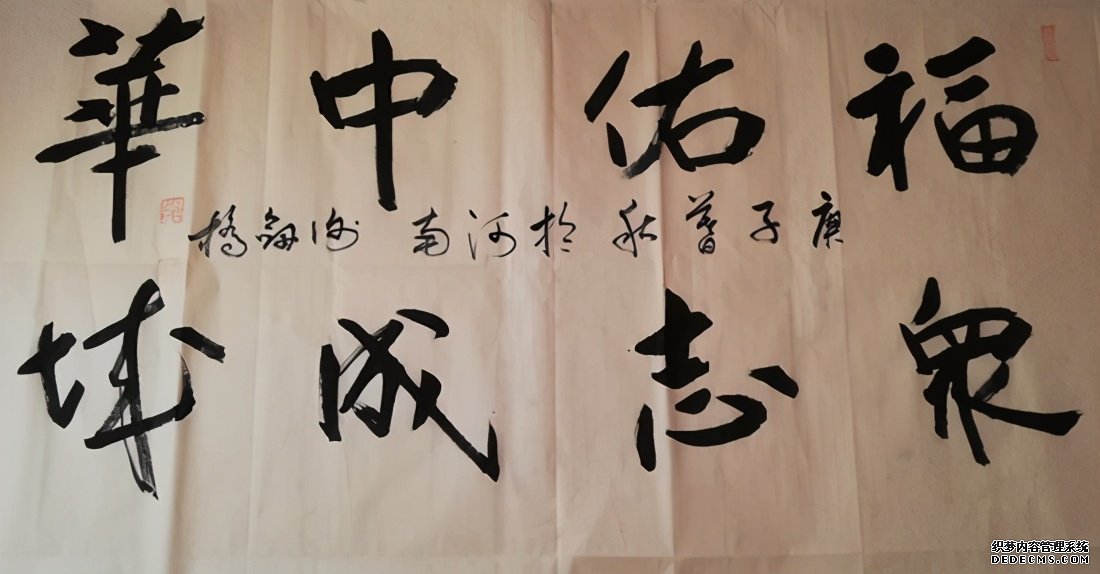 福佑中華
庚子暮秋於河南 劍橋
衆志成城
织梦内容管理系统
DEDECMS.COM